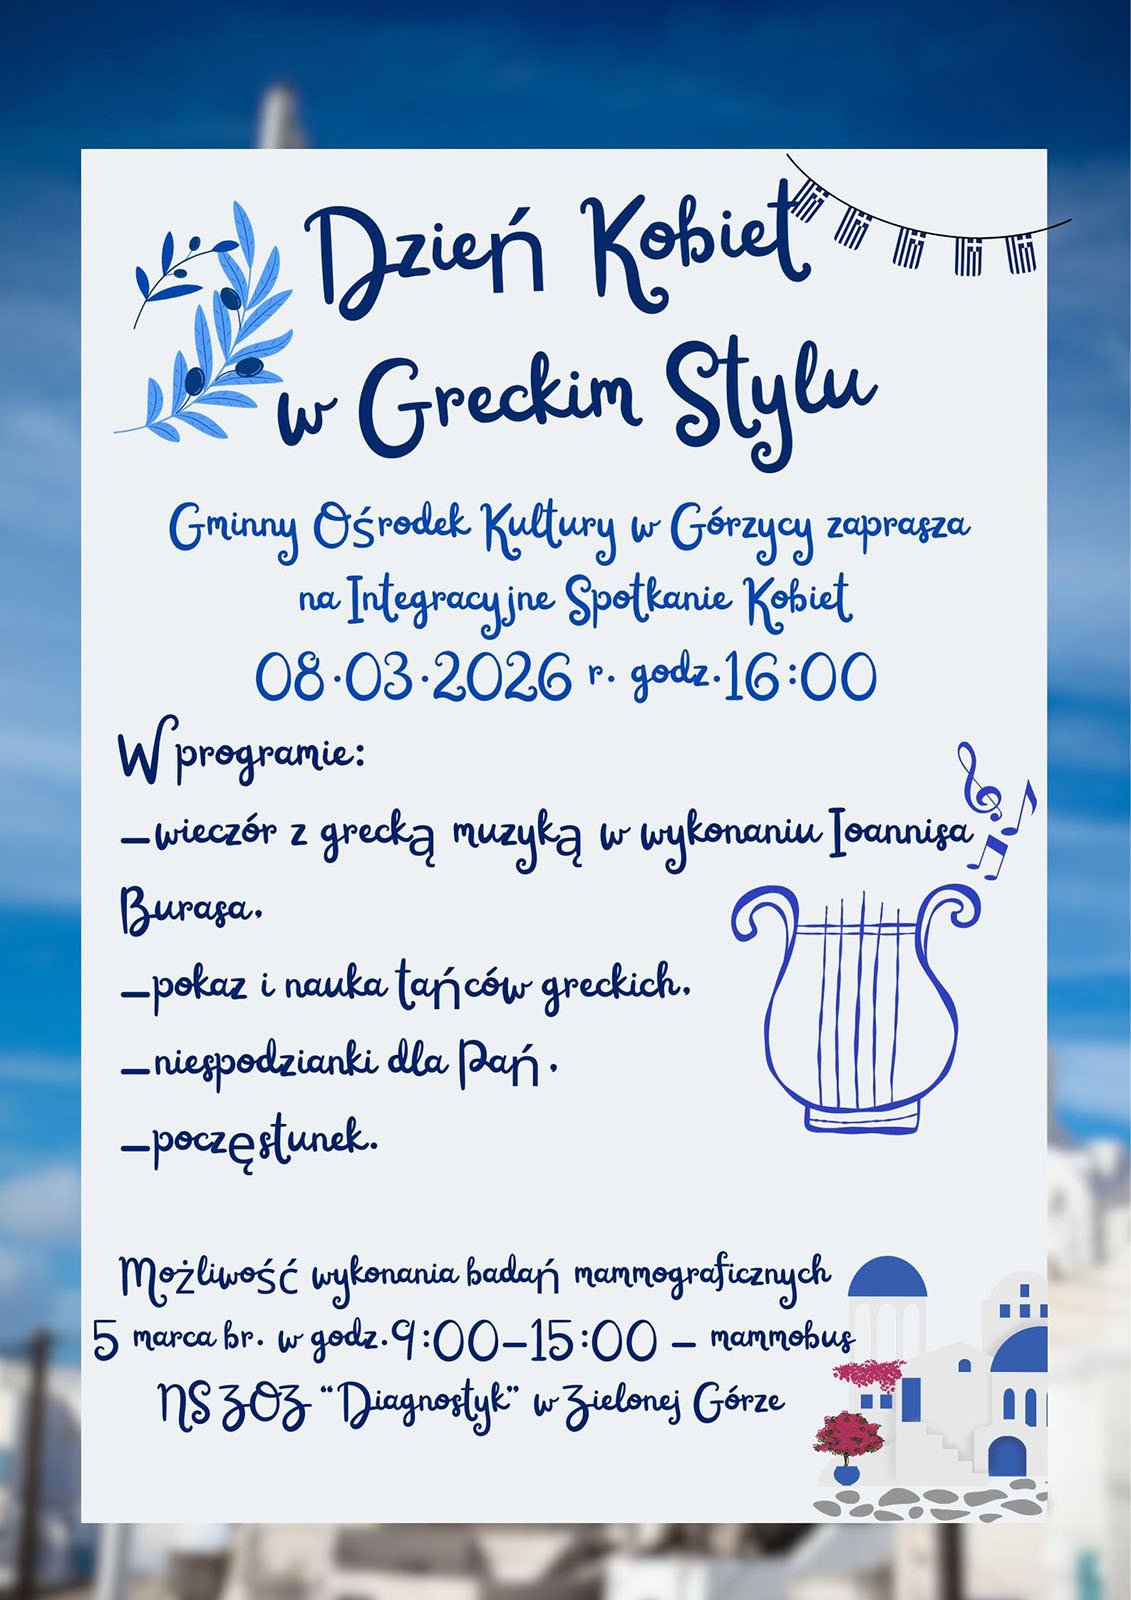 Dzień Kobiet
w Greckim Stylu
Gminny Ośrodek Kultury w Górzycy zaprasza
na Integracyjne Spotkanie Kobiet
08.03.2026 r. godz.16:00
W programie:
-wieczór z grecką muzyką w wykonaniu Ioannisa
Burasa.
-pokaz i nauka tańców greckich.
-niespodzianki dla Pań.
-poczęstunek.
Możliwość wykonania badań mammograficznych
5 marca br. w godz.9:00-15:00 - mammobus
NS ZOZ "Diagnostyk" w Zielonej Górze